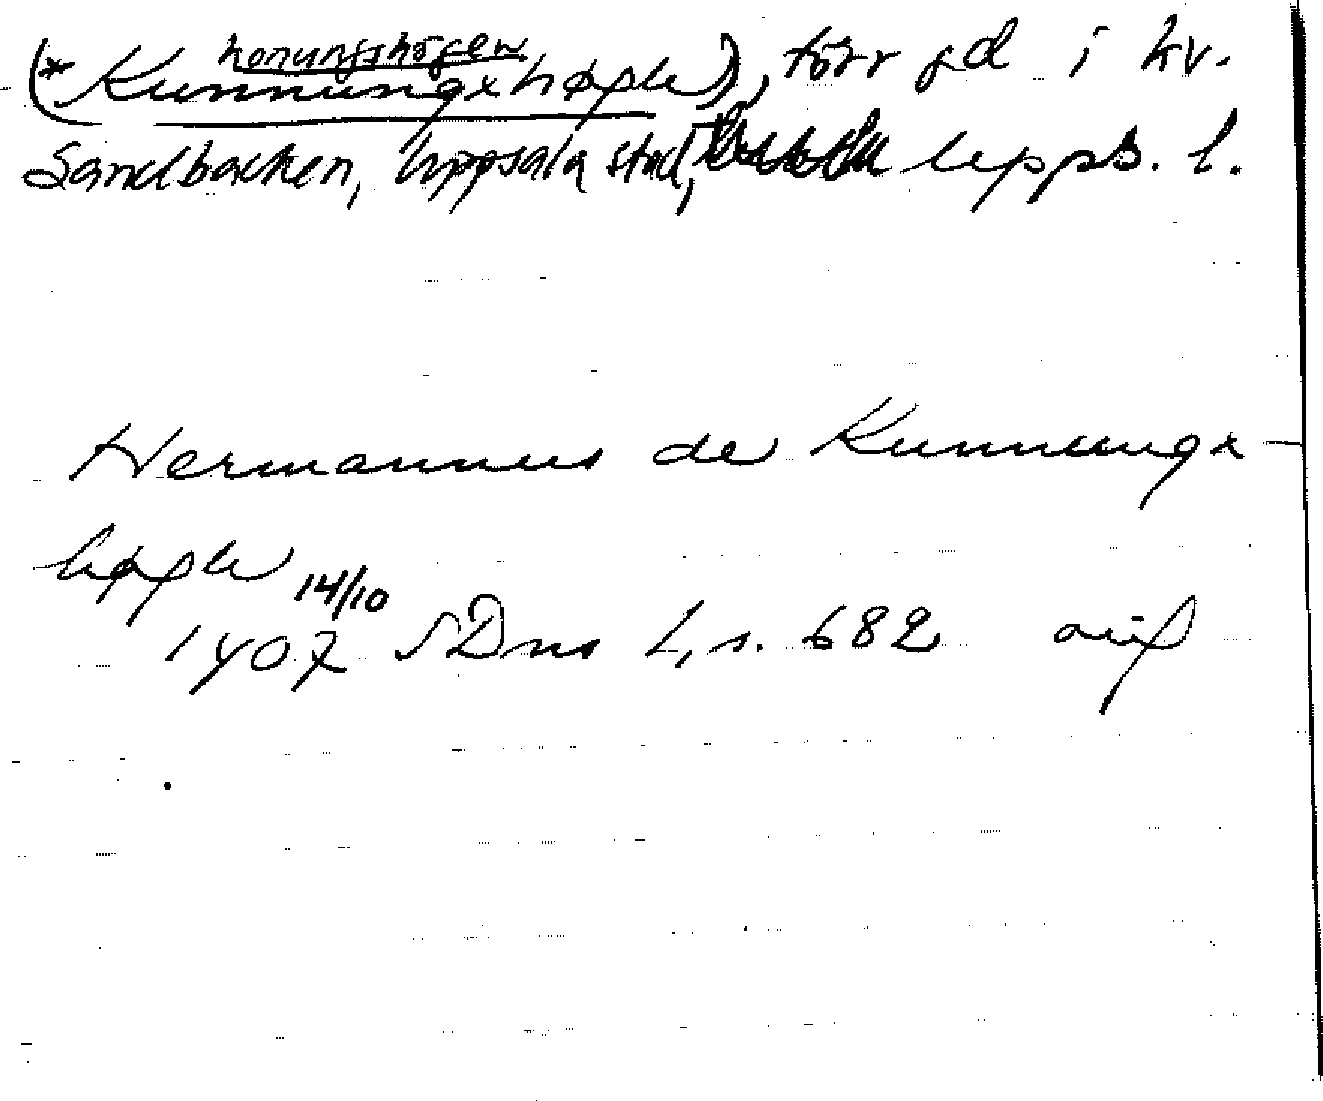 konungshögen
(*Kunnungxhøghe), förr gd i kv.
Sandbacken, Uppsala stad, Upps. l.
Hermannus de Kunnungx-
høghe
14/10
1407 SDns 1, s. 682 avis